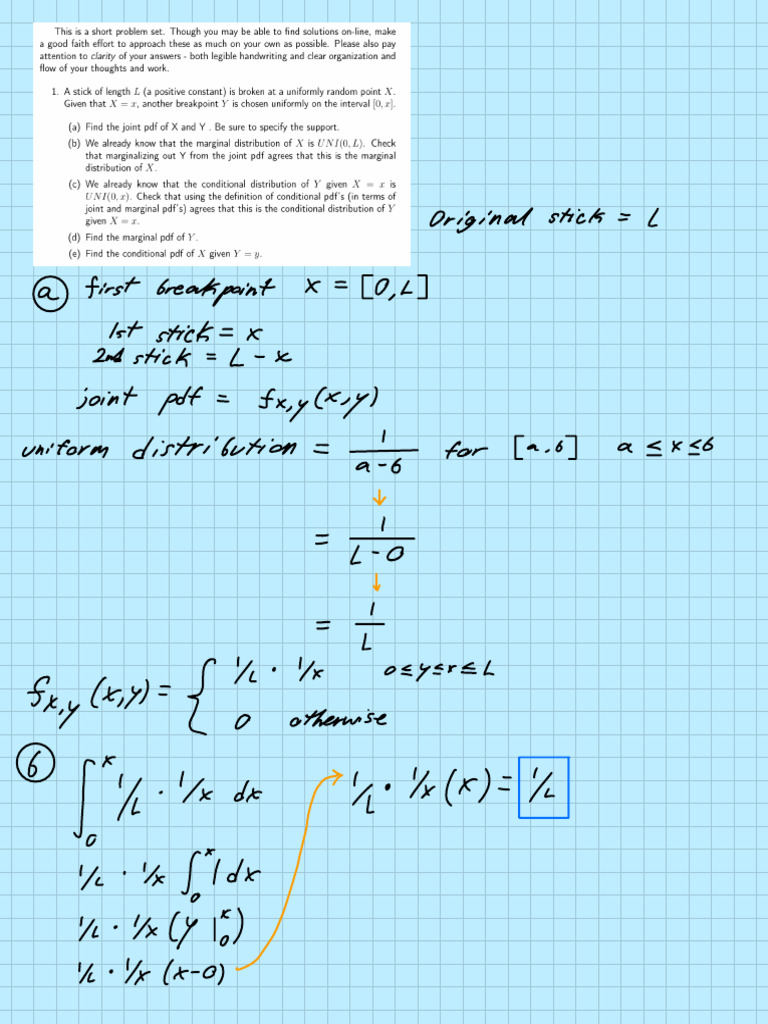 This is a short problem set. Though you may be able to find solutions on-line, make
a good faith effort to approach these as much on your own as possible. Please also pay
attention to clarity of your answers - both legible handwriting and clear organization and
flow of your thoughts and work.
1. A stick of length L (a positive constant) is broken at a uniformly random point X.
Given that X = x, another breakpoint Y is chosen uniformly on the interval [0, x].
(a) Find the joint pdf of X and Y . Be sure to specify the support.
(b) We already know that the marginal distribution of X is UNI(0, L). Check
that marginalizing out Y from the joint pdf agrees that this is the marginal
distribution of X.
(c) We already know that the conditional distribution of Y given X = x is
UNI(0, x). Check that using the definition of conditional pdf's (in terms of
joint and marginal pdf's) agrees that this is the conditional distribution of Y
given X = x.
(d) Find the marginal pdf of Y.
(e) Find the conditional pdf of X given Y = y.
Original stick = L
(a) first breakpoint x = [0,L]
1st stick = x
2nd stick = L - x
joint pdf = fx,y(x,y)
uniform distribution = 1/(a-b) for [a,b] a ≤ x ≤ b
↓
= 1/(L-0)
↓
= 1/L
fx,y(x,y) = { 1/L · 1/x 0≤y≤x≤L
0 otherwise
(b) ∫₀ˣ 1/L · 1/x dx → 1/L · 1/x (x) = 1/L
1/L · 1/x ∫₀ˣ 1 dx
1/L · 1/x (y |₀ˣ)
1/L · 1/x (x-0)